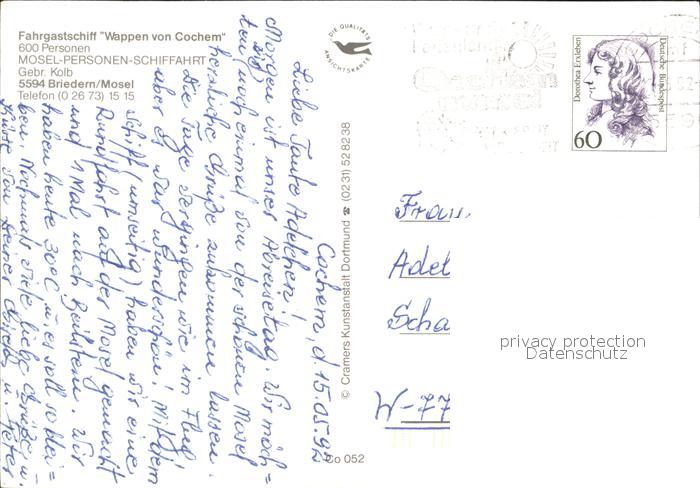 Fahrgastschiff "Wappen von Cochem"
600 Personen
MOSEL-PERSONEN-SCHIFFAHRT
Gebr. Kolb
5594 Briedern/Mosel
Telefon (0 26 73) 15 15
DIE QUALITÄTS
ANSICHTSKARTE
Dorothea Erxleben
Deutsche Bundespost
60
© Cramers Kunstanstalt Dortmund ☎ (02 31) 52 82 38
Co 052
Cochem, d. 15.05.92
Liebe Tante Adelchen!
Morgen ist unser Abreisetag. Wir möch=
ten noch einmal von der schönen Mosel
herzliche Grüße zukommen lassen.
Die Tage vergingen wie im Flug,
aber es war wunderschön! Mit dem
Schiff (umseitig) haben wir eine
Rundfahrt auf der Mosel gemacht
und 1 Mal nach Beilstein. Wir
haben heute 30°C u. es soll so blei=
ben. Nochmals viele liebe Grüße u.
Küsse von Deiner u. Peter
Frau
Adel
Scha
W-77
privacy protection
Datenschutz